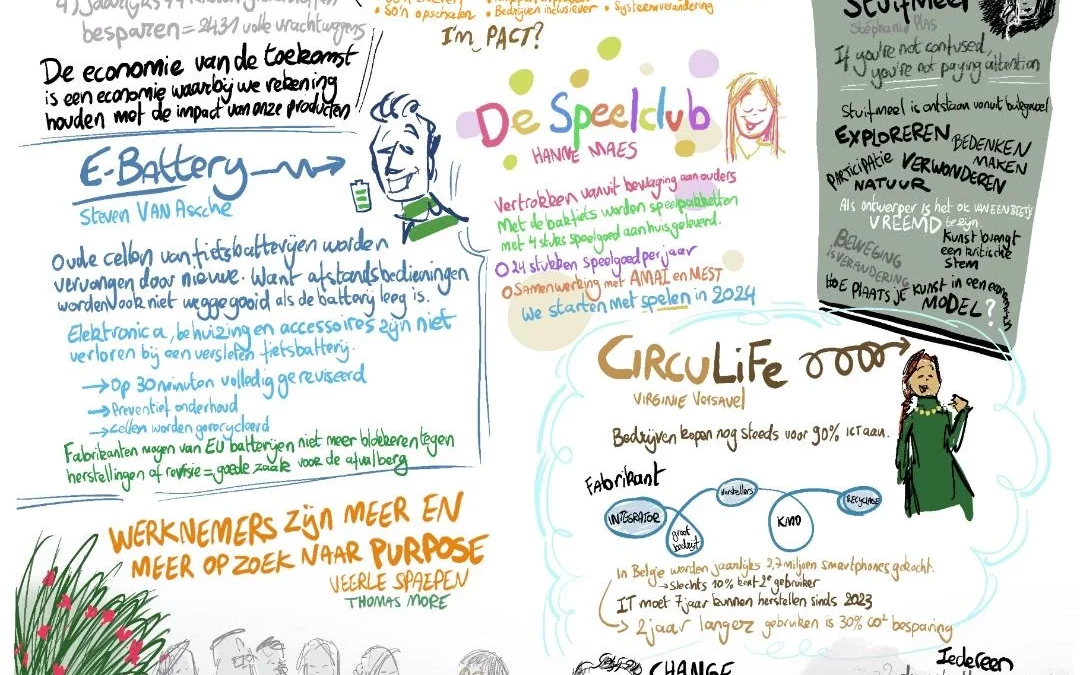 besparen = 2431 volle vrachtwagens
De economie van de toekomst
is een economie waarbij we rekening
houden met de impact van onze producten
• SO'N opschalen • Bedrijven inclusiever • Systeemverandering
I'm PACT?
E-Battery
Steven Van Assche
Oude cellen van fietsbatterijen worden
vervangen door nieuwe. Want afstandsbedieningen
worden ook niet weggegooid als de batterij leeg is.
Elektronica, behuizing en accessoires zijn niet
verloren bij een versleten fietsbatterij.
→ Op 30 minuten volledig gereviseerd
→ Preventief onderhoud
→ Cellen worden gerecycleerd
Fabrikanten mogen van EU batterijen niet meer blokkeren tegen
herstellingen of revisie = goede zaak voor de afvalberg
De Speelclub
HANNE MAES
Vertrokken vanuit bevraging aan ouders
Met de bakfiets worden speelpakketten
met 4 stuks speelgoed aan huis geleverd.
24 stukken speelgoed per jaar
Samenwerking met AMAI en MEST
We starten met spelen in 2024
Stuifmeel
Stéphanie Plas
If you're not confused,
you're not paying attention
Stuifmeel is ontstaan vanuit buikgevoel
EXPLOREREN BEDENKEN
MAKEN
PARTICIPATIE VERWONDEREN
NATUUR
Als ontwerper is het ok om een beetje
VREEMD te zijn
BEWEGING
IS VERANDERING
Kunst brengt
een kritische
stem
HOE PLAATS JE KUNST IN EEN economisch
MODEL?
CIRCULIFE
VIRGINIE Versavel
Bedrijven kopen nog steeds voor 90% ICT aan.
Fabrikant
INTEGRATOR
groot
bedrijf
Herstellers
KMO
RECYCLAGE
In Belgie worden jaarlijks 2,7 miljoen smartphones gekocht.
→ Slechts 10% kent 2e gebruiker
IT moet 7 jaar kunnen herstellen sinds 2023
→ 2 jaar langer gebruiken is 30% CO² besparing
WERKNEMERS ZIJN MEER EN
MEER OP ZOEK NAAR PURPOSE
VEERLE SPAEPEN
THOMAS MORE
CHANGE
Iedereen